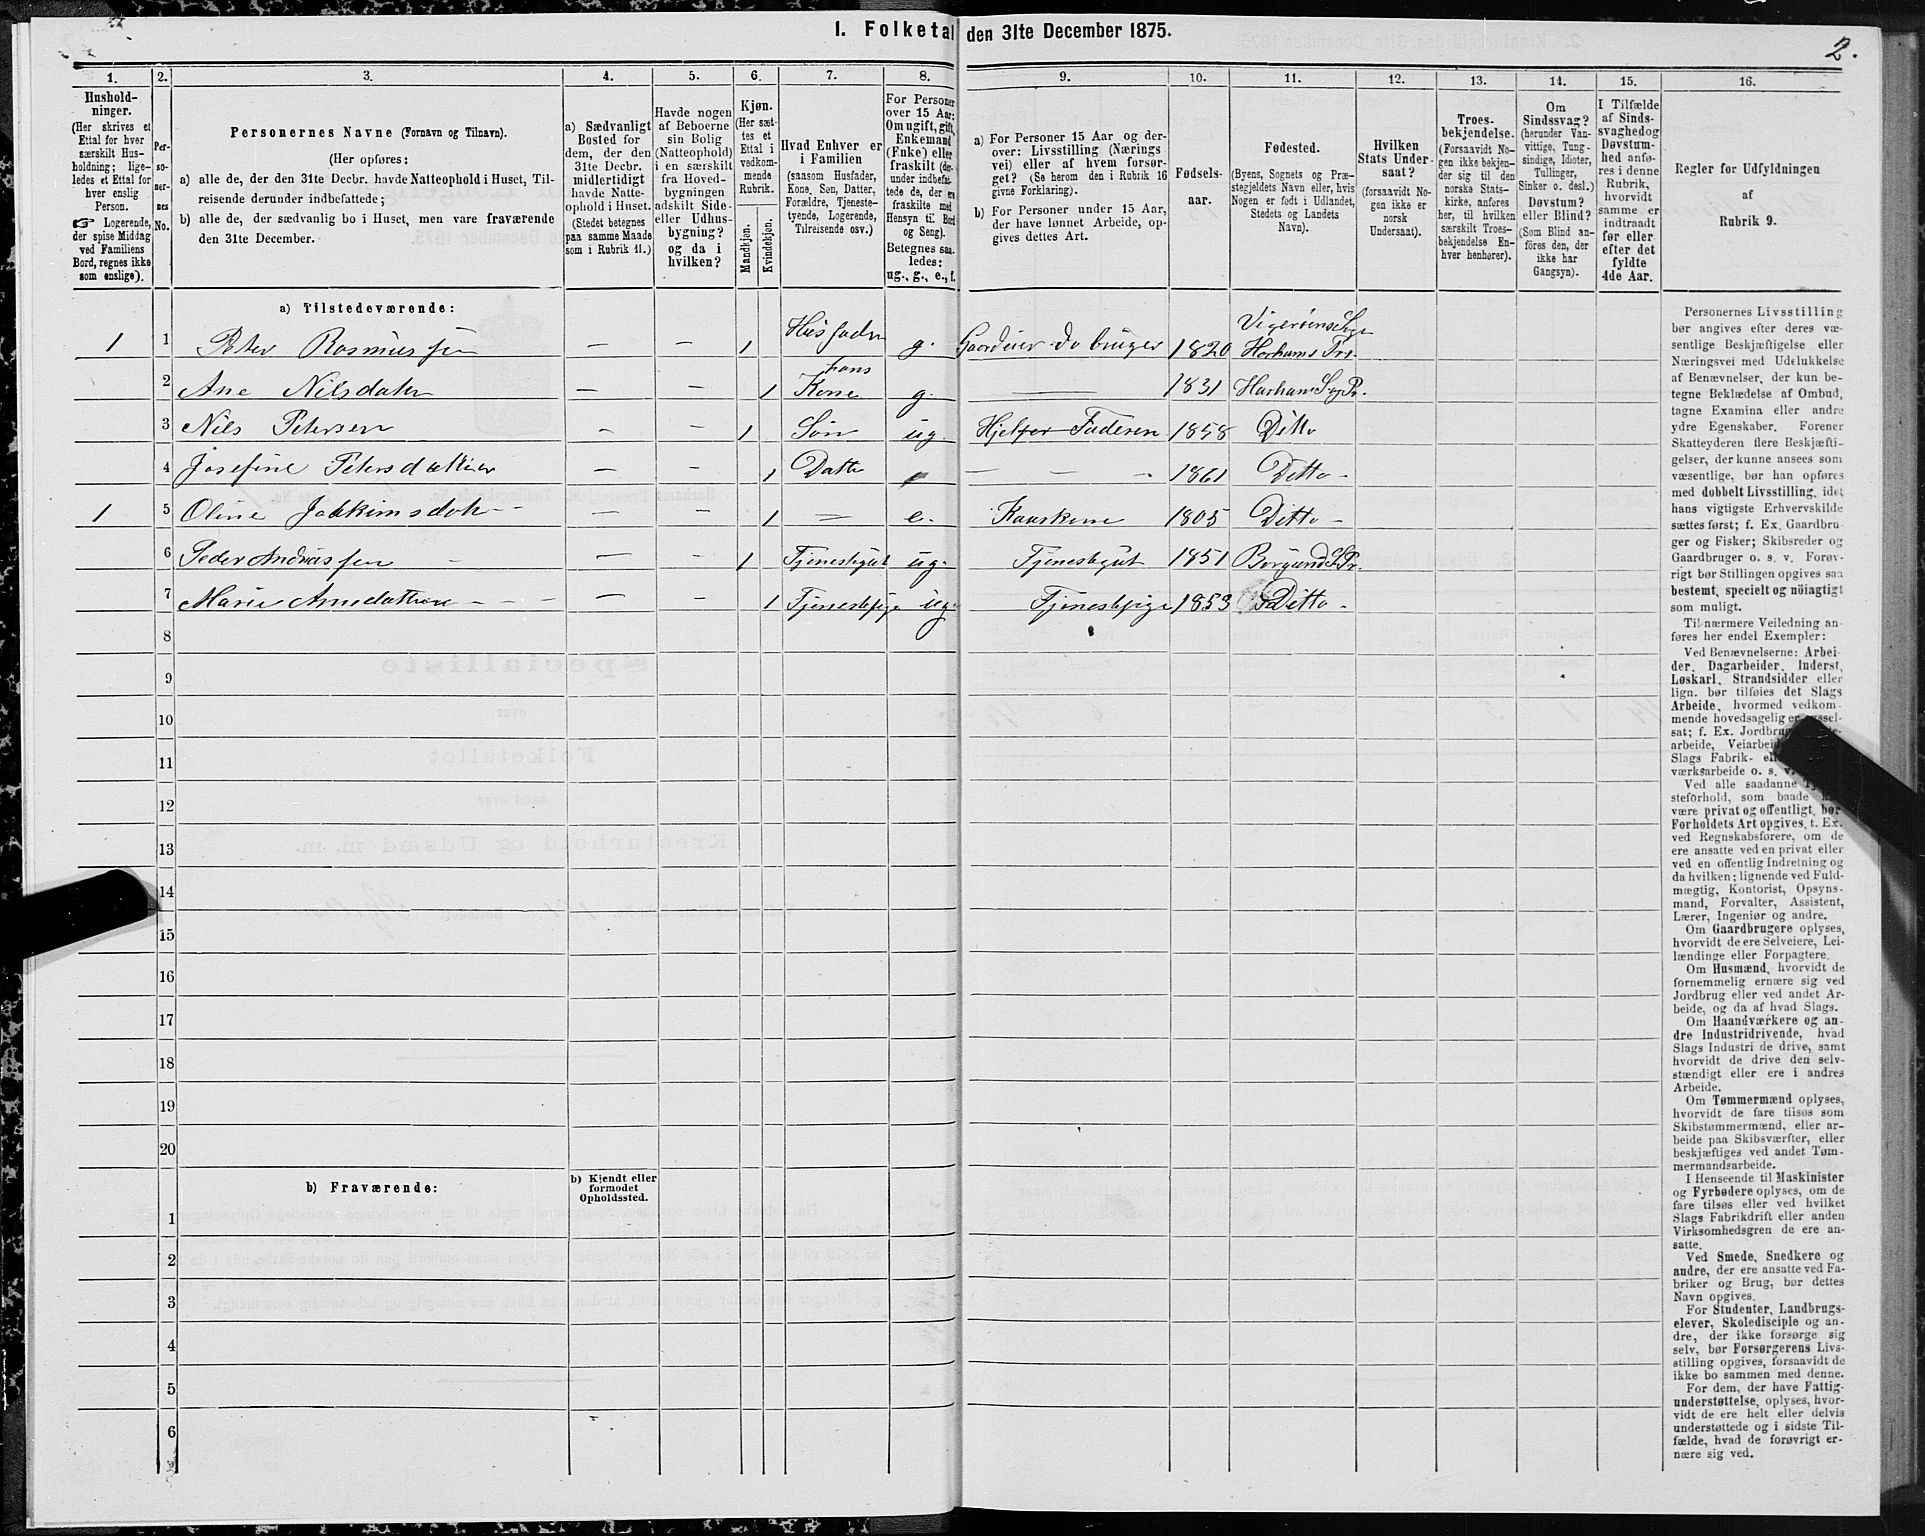 I. Folketal den 31te December 1875.
2.
1.
Hushold-
ninger.
(Her skrives et
Ettal for hver
særskilt Hus-
holdning; lige-
ledes et Ettal for
hver enslig
Person.
☞ Logerende,
der spise Middag
ved Familiens
Bord, regnes ikke
som enslige).
2.
Per-
so-
ner-
nes
No.
3.
Personernes Navne (Fornavn og Tilnavn).
(Her opføres:
a) alle de, der den 31te Decbr. havde Natteophold i Huset, Til-
reisende derunder indbefattede;
b) alle de, der sædvanlig bo i Huset, men vare fraværende
den 31te December.
4.
a) Sædvanligt
Bosted for
dem, der den
31te Decbr.
midlertidigt
havde Natte-
ophold i Huset.
(Stedet betegnes
paa samme Maade
som i Rubrik 11.)
5.
Havde nogen
af Beboerne
sin Bolig
(Natteophold)
i en særskilt
fra Hoved-
bygningen
adskilt Side-
eller Udhus-
bygning?
og da i
hvilken?
6.
Kjøn.
(Her sæt-
tes et
Ettal i
vedkom-
mende
Rubrik.
Mandkjøn.
Kvindekjøn.
7.
Hvad Enhver er
i Familien
(saasom Husfader,
Kone, Søn, Datter,
Forældre, Tjeneste-
tyende, Logerende,
Tilreisende osv.)
8.
For Personer
over 15 Aar:
Om ugift, gift,
Enkemand
(Enke) eller
fraskilt (der-
under indbefat-
tede de, der ere
fraskilte med
Hensyn til Bord
og Seng).
Betegnes saa-
ledes:
ug., g., e., f.
9.
a) For Personer 15 Aar og der-
over: Livsstilling (Nærings-
vei) eller af hvem forsør-
get? (Se herom den i Rubrik 16
givne Forklaring).
b) For Personer under 15 Aar,
der have lønnet Arbeide, op-
gives dettes Art.
10.
Fødsels-
aar.
11.
Fødested.
(Byens, Sognets og Præ-
stegjeldets Navn eller, hvis
Nogen er født i Udlandet,
Stedets og Landets
Navn).
12.
Hvilken
Stats Under-
saat?
(forsaavidt No-
gen ikke er
norsk
Undersaat).
13.
Troes-
bekjendelse.
(Forsaavidt No-
gen ikke bekjen-
der sig til den
norske Stats-
kirke, anføres
her, til hvilken
særskilt Troes-
bekjendelse En-
hver henhører).
14.
Om
Sindssvag?
(herunder Van-
vittige, Tung-
sindige, Idioter,
Tullinger,
Sinker o. desl.)
Døvstum?
eller Blind?
(Som Blind an-
føres den, der
ikke har
Gangsyn).
15.
I Tilfælde
af Sinds-
svaghed og
Døvstum-
hed anfø-
res i denne
Rubrik,
hvorvidt
samme er
indtraadt
før eller
efter det
fyldte
4de Aar.
16.
Regler for Udfyldningen
af
Rubrik 9.
a) Tilstedeværende:
1 1 Peter Rasmussen – – 1 Husfader g. Gaardeier do bruger 1820 Vigerøens Sogn Harhams Pr.
2 Ane Nilsdatter – – 1 hans Kone g. — 1831 Harhams S og Pr.
3 Nils Petersen – – 1 Søn ug. Hjelper Faderen 1858 Ditto
4 Josefine Petersdatter – – 1 Datter – – 1861 Ditto –
1 5 Oline Jakkimsdatter – – 1 – e. Kaarkone 1805 Ditto –
6 Peder Andreassen – – 1 Tjenestegut ug. Tjenestegut 1851 Borgund S. Pr.
7 Marie Arnedatter – – 1 Tjenestepige ug. Tjenestepige 1853 Ditto –
8
9
10
11
12
13
14
15
16
17
18
19
20
b) Fraværende:
b) Kjendt eller
formodet
Opholdssted.
1
2
3
4
5
6
Personernes Livsstilling
bør angives efter deres væ-
sentlige Beskjæftigelse eller
Næringsvei med Udelukkelse
af Benævnelser, der kun be-
tegne Beklædelse af Ombud,
tagne Examina eller andre
ydre Egenskaber. Forener
Skatteyderen flere Beskjæfti-
gelser, der kunne ansees som
væsentlige, bør han opføres
med dobbelt Livsstilling, idet
hans vigtigste Erhvervskilde
sættes først; f. Ex. Gaardbru-
ger og Fisker; Skibsreder og
Gaardbruger o. s. v. Forøv-
rigt bør Stillingen opgives saa
bestemt, specielt og nöiagtigt
som muligt.
Til nærmere Veiledning an-
føres her endel Exempler:
Ved Benævnelserne: Arbei-
der, Dagarbeider, Inderst,
Løskarl, Strandsidder eller
lign. bør tilføies det Slags
Arbeide, hvormed vedkom-
mende hovedsagelig er syssel-
sat; f. Ex. Jordbru
arbeide, Veiarbeid
Slags Fabrik-
værksarbeide o. s. v.
Ved alle saadanne
steforhold, som baade
være privat og offentligt, bør
Forholdets Art opgives, t. Ex.
ved Regnskabsførere, om de
ere ansatte ved en privat eller
ved en offentlig Indretning og
da hvilken; lignende ved Fuld-
mægtig, Kontorist, Opsyns-
mand, Forvalter, Assistent,
Lærer, Ingeniør og andre.
Om Gaardbrugere oplyses,
hvorvidt de ere Selveiere, Lei-
lændinge eller Forpagtere.
Om Husmænd, hvorvidt de
fornemmelig ernære sig ved
Jordbrug eller ved andet Ar-
beide, og da af hvad Slags.
Om Haandværkere og an-
dre Industridrivende, hvad
Slags Industri de drive, samt
hvorvidt de drive den selv-
stændigt eller ere i andres
Arbeide.
Om Tømmermænd oplyses,
hvorvidt de fare tilsøs som
Skibstømmermænd, eller ar-
beide paa Skibsværfter, eller
beskjæftiges ved andet Tøm-
mermandsarbeide.
I Henseende til Maskinister
og Fyrbødere oplyses, om de
fare tilsøs eller ved hvilket
Slags Fabrikdrift eller anden
Virksomhedsgren de ere an-
satte.
Ved Smede, Snedkere og
andre, der ere ansatte ved Fa-
briker og Brug, bør dettes
Navn opgives.
For Studenter, Landbrugs-
elever, Skoledisciple og an-
dre, der ikke forsørge sig
selv, bør Forsørgerens Livs-
stilling opgives, forsaavidt de
ikke bo sammen med denne.
For dem, der have Fattig-
understøttelse, oplyses, hvor-
vidt de ere helt eller delvis
understøttede og i sidste Til-
fælde, hvad de forøvrigt er-
nære sig ved.